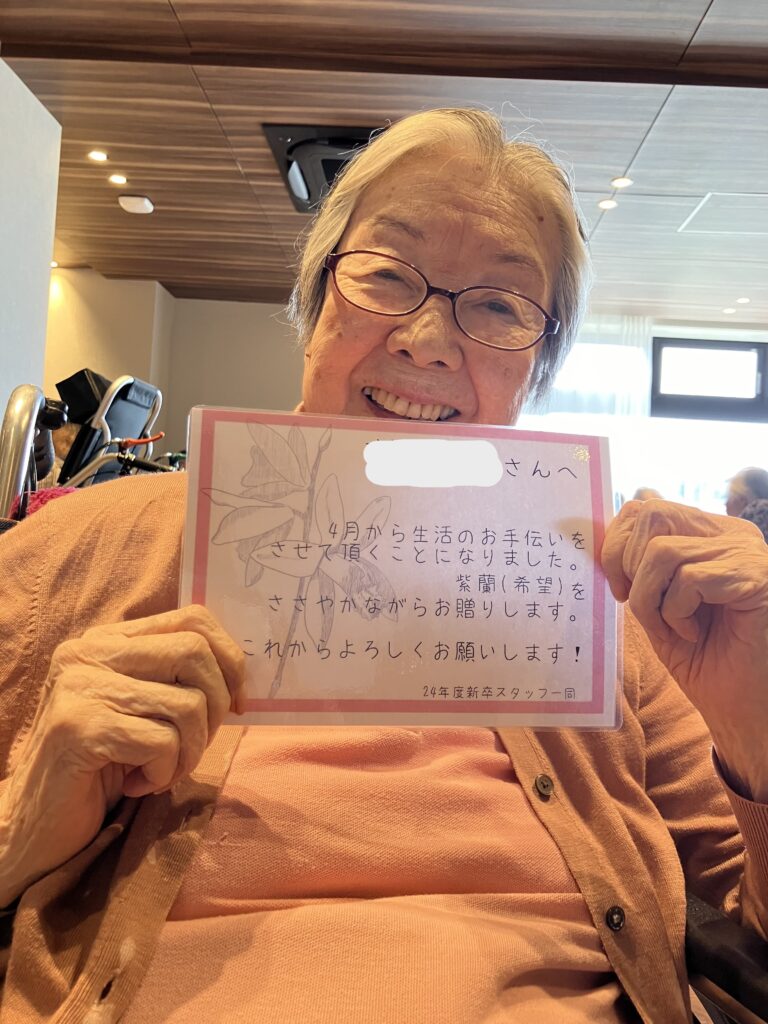 さんへ
4月から生活のお手伝いを
させて頂くことになりました。
紫蘭(希望)を
ささやかながらお贈りします。
これからよろしくお願いします！
24年度新卒スタッフ一同